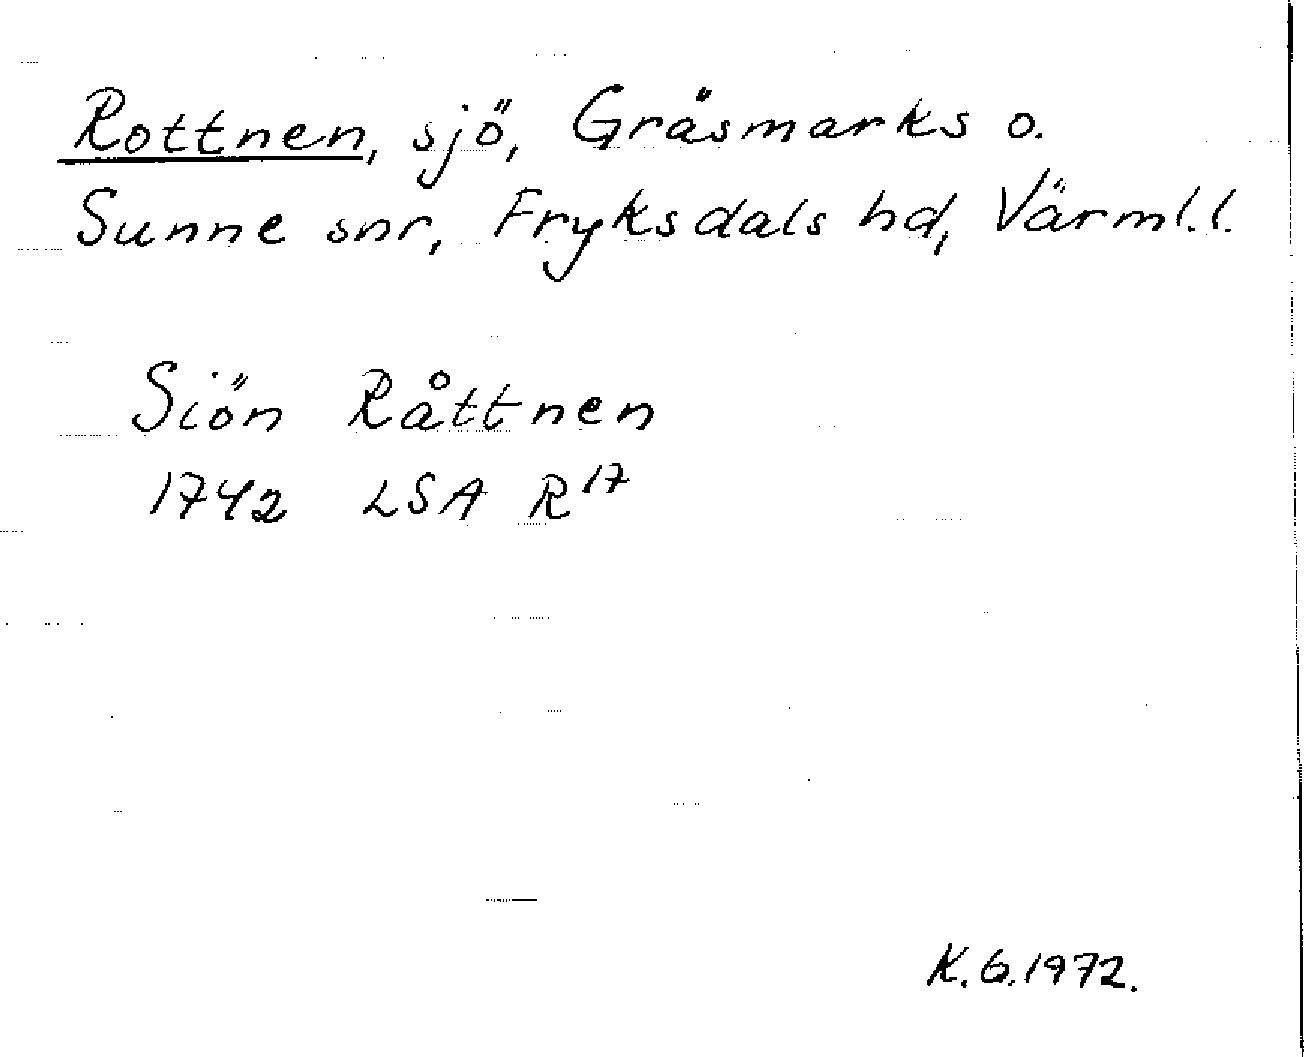 Rottnen, sjö, Gräsmarks o.
Sunne snr, Fryksdals hd, Värml.l.
Siön Råttnen
1742 LSA R17
K.G.1972.